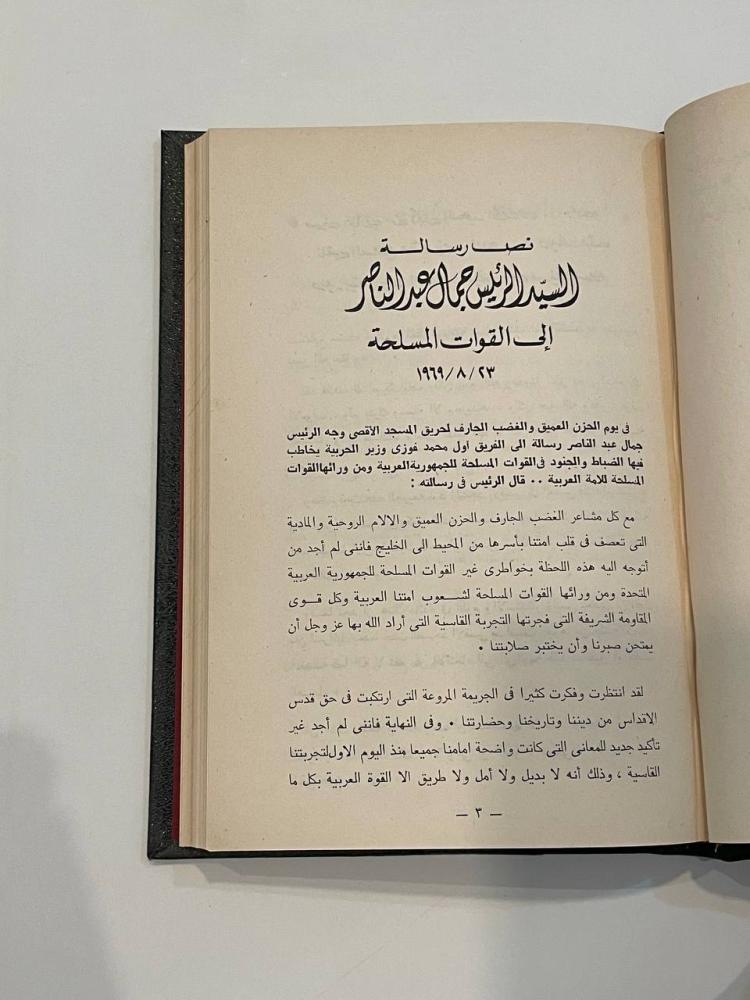 نص رسالة
السيد الرئيس جمال عبد الناصر
إلى القوات المسلحة
١٩٦٩/٨/٢٣
فى يوم الحزن العميق والغضب الجارف لحريق المسجد الاقصى وجه الرئيس
جمال عبد الناصر رسالة الى الفريق اول محمد فوزى وزير الحربية يخاطب
فيها الضباط والجنود فى القوات المسلحة للجمهورية العربية ومن ورائها القوات
المسلحة للامة العربية ٠٠ قال الرئيس فى رسالته :
مع كل مشاعر الغضب الجارف والحزن العميق والالام الروحية والمادية
التى تعصف فى قلب امتنا بأسرها من المحيط الى الخليج فاننى لم أجد من
أتوجه اليه هذه اللحظة بخواطرى غير القوات المسلحة للجمهورية العربية
المتحدة ومن ورائها القوات المسلحة لشعوب امتنا العربية وكل قوى
المقاومة الشريفة التى فجرتها التجربة القاسية التى أراد الله بها عز وجل أن
يمتحن صبرنا وأن يختبر صلابتنا ٠
لقد انتظرت وفكرت كثيرا فى الجريمة المروعة التى ارتكبت فى حق قدس
الاقداس من ديننا وتاريخنا وحضارتنا ٠ وفى النهاية فاننى لم أجد غير
تأكيد جديد للمعانى التى كانت واضحة امامنا جميعا منذ اليوم الاول لتجربتنا
القاسية ، وذلك أنه لا بديل ولا أمل ولا طريق الا القوة العربية بكل ما
— ٣ —